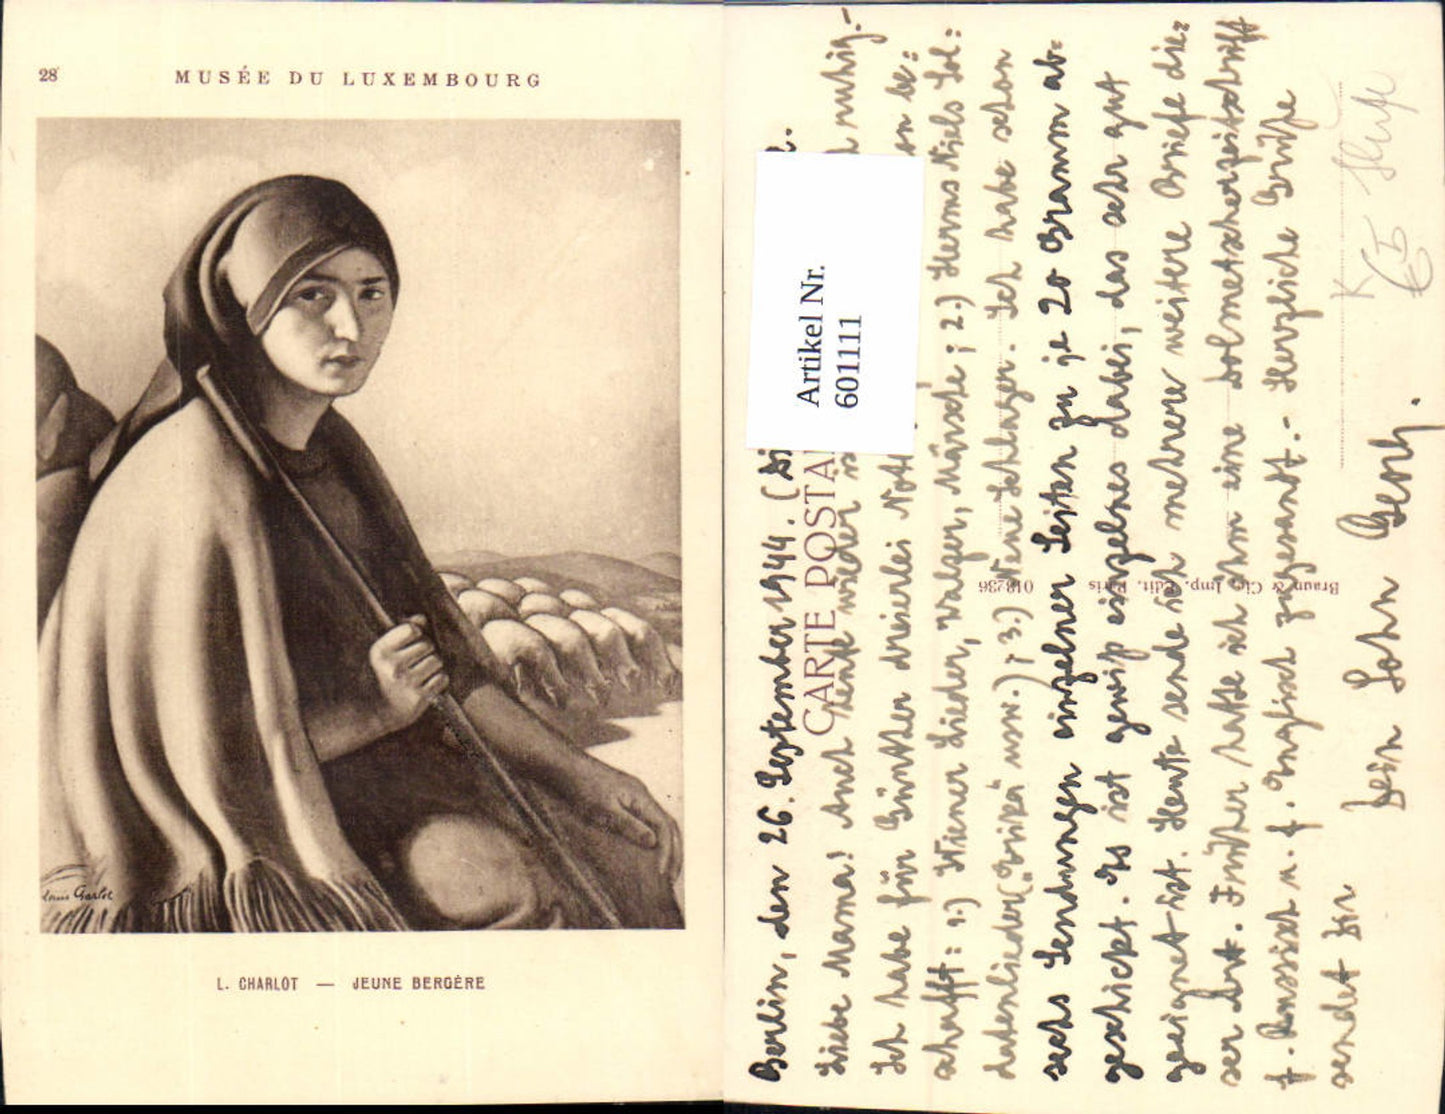 28
MUSÉE DU LUXEMBOURG
Louis Charlot
L. CHARLOT — JEUNE BERGÈRE
Berlin, den 26. September 1944. (Di
Liebe Mama! Auch heute wieder ruhig.-
Ich habe für Günther dreierlei be=
schafft: 1.) Wiener Lieder, Walzer, Märsche; 2.) Herms Niels Sol=
datenlieder („Erika“ usw.); 3.) Neue Schlager. Ich habe schon
sechs Sendungen einzelner Seiten zu je 20 Gramm ab=
geschickt. Es ist gewiß einzelnes dabei, das sehr gut
geeignet ist. Heute sende ich mehrere weitere Briefe die=
ser Art. Früher hatte ich ihm eine Dolmetscherzeitschrift
f. Russisch u. f. Englisch zugesandt.- Herzliche Grüße
sendet Dir
Dein Sohn Georg.
CARTE POSTA
Braun & Cie, Imp. Edit. Paris
Artikel Nr.
601111
K